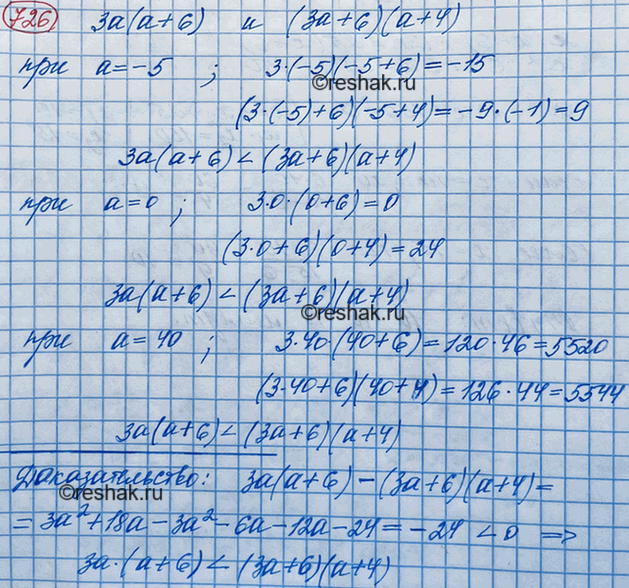 726 3a(a+6) и (3a+6)(a+4)
при a=-5 ; 3·(-5)(-5+6)=-15
©reshak.ru
(3·(-5)+6)(-5+4)=-9·(-1)=9
3a(a+6)<(3a+6)(a+4)
при a=0 ; 3·0·(0+6)=0
(3·0+6)(0+4)=24
3a(a+6)<(3a+6)(a+4)
©reshak.ru
при a=40 ; 3·40·(40+6)=120·46=5520
(3·40+6)(40+4)=126·44=5544
3a(a+6)<(3a+6)(a+4)
Доказательство: 3a(a+6)-(3a+6)(a+4)=
©reshak.ru
=3a²+18a-3a²-6a-12a-24=-24<0 =>
3a·(a+6)<(3a+6)(a+4)